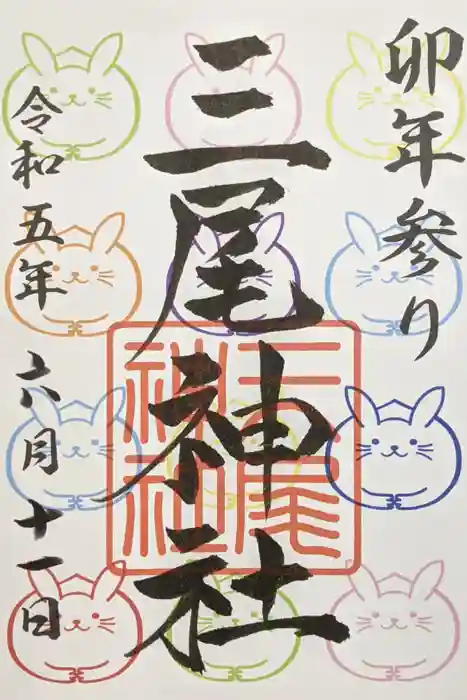 卯年参り
三尾神社
三尾神社
令和五年 六月十一日